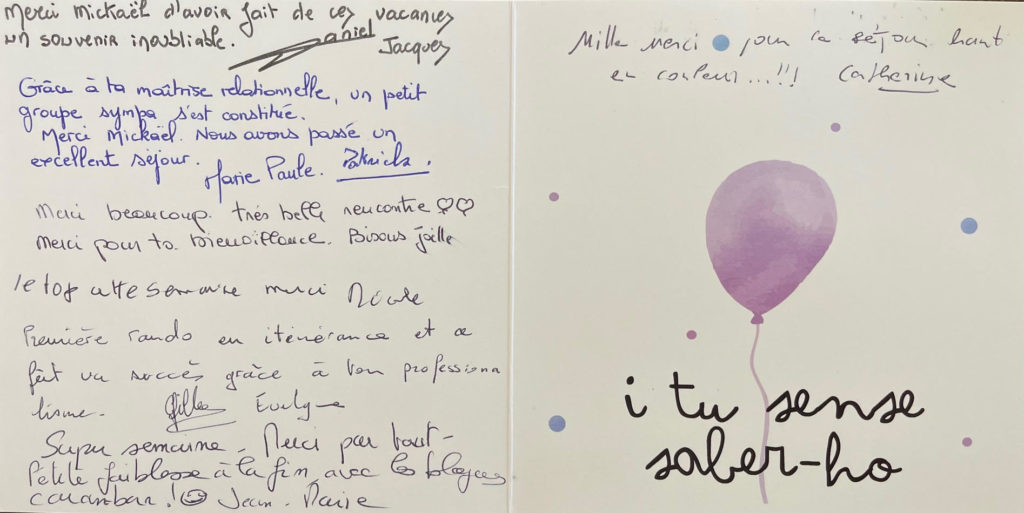 Merci Mickaël d'avoir fait de ces vacances
un souvenir inoubliable.
Daniel
Jacques
Grâce à ta maîtrise relationnelle, un petit
groupe sympa s'est constitué.
Merci Mickaël. Nous avons passé un
excellent séjour.
Marie Paule. Patrick.
Merci beaucoup. très belle rencontre ♡♡
Merci pour ta bienveillance. Bisous Joëlle
le top cette semaine merci Nicole
Première rando en itinérance et ce
fût un succès grâce à ton professionna
lisme. Gilles Évelyne
Super semaine. Merci pour tout -
Petite faiblesse à la fin avec les blagues
carambar ! Jean-Marie
Mille merci pour ce séjour haut
en couleur...!!! Catherine
i tu sense
saber-ho